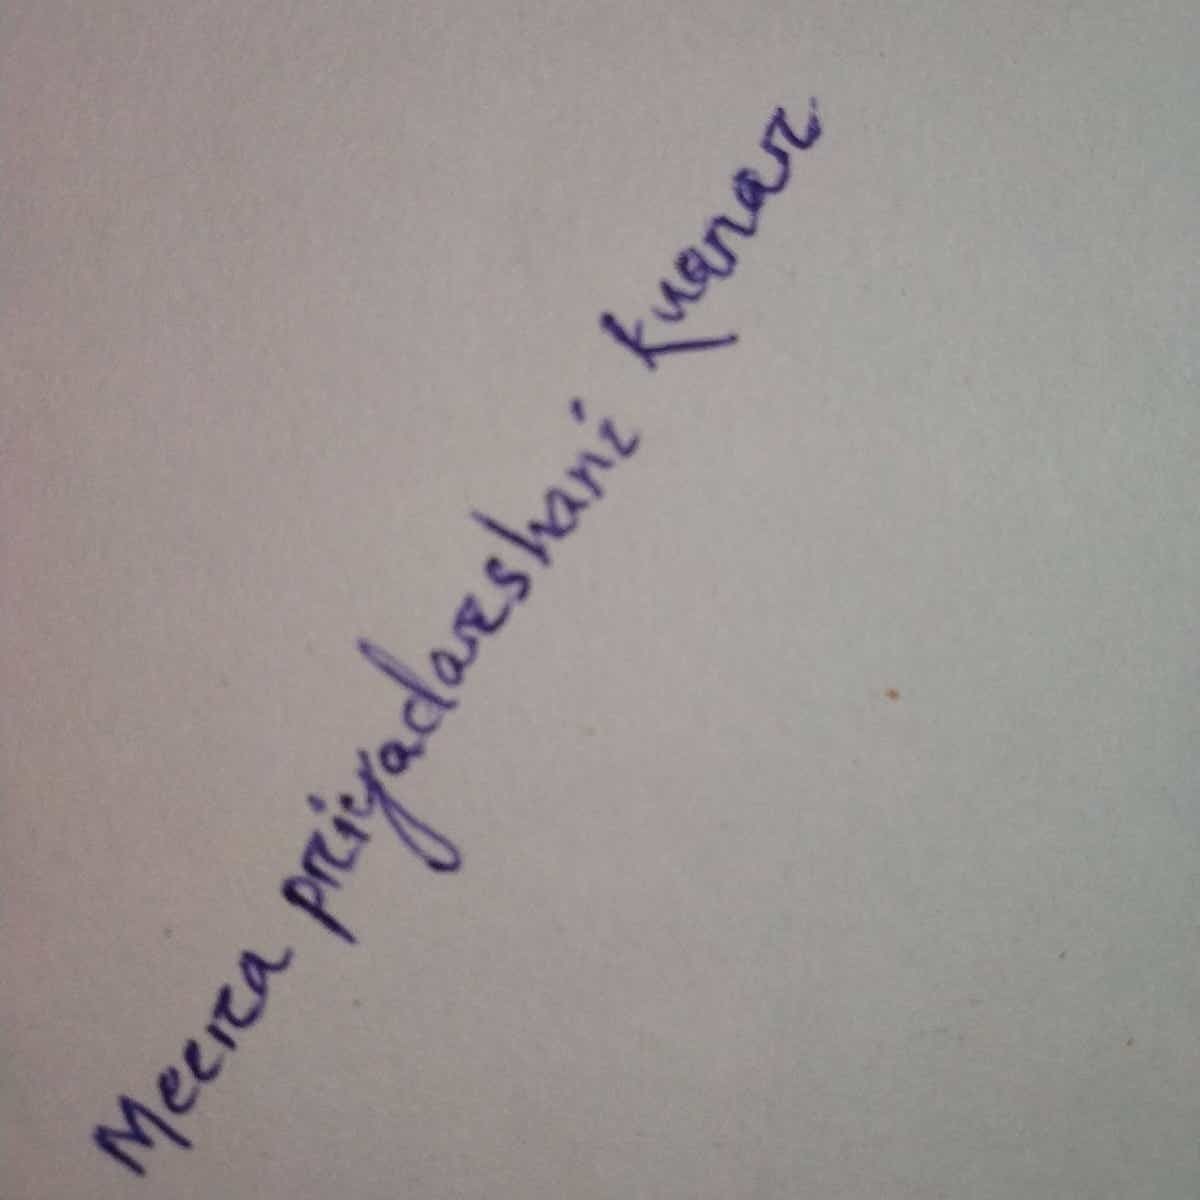 Meera priyadarshani Kuanar